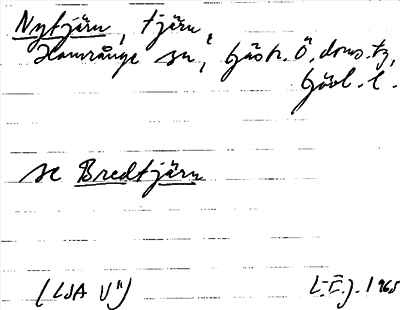 Nytjärn, tjärn,
Hamrånge sn, Gästr. Ö. doms. tg,
Gävl. l.
se Bredtjärn
(LSA V")
L-E. J. 1965